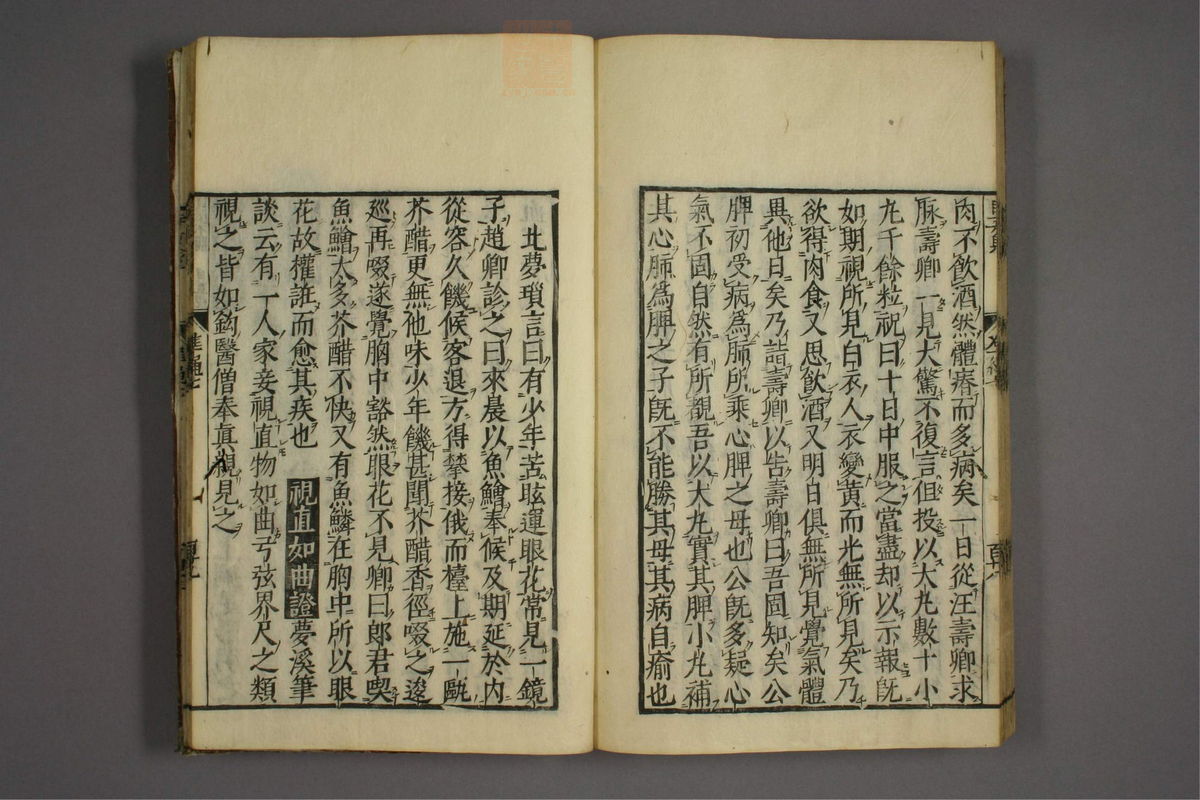 肉不飲酒然體瘠而多病矣一日從汪壽卿求
脉壽卿一見大驚不復言但投以大丸數十小
丸千餘粒祝曰十日中服之當盡却以示報旣
如期視所見白衣人衣變黃而光無所見矣乃
欲得肉食又思飲酒又明日俱無所見覺氣體
異他日矣乃詣壽卿以告壽卿曰吾固知矣公
脾初受病爲肺所乘心脾之母也公旣多疑心
氣不固自然有所覩吾以大丸實其脾小丸補
其心肺爲脾之子旣不能勝其母其病自瘉也
北夢瑣言曰有少年苦眩運眼花常見一鏡
子趙卿診之曰來晨以魚鱠奉候及期延於内
從容久饑候客退方得攀接俄而檯上施一甌
芥醋更無他味少年饑甚聞芥醋香徑啜之逡
巡再啜遂覺胸中豁然眼花不見卿曰郎君喫
魚鱠太多芥醋不快又有魚鱗在胸中所以眼
花故權誑而愈其疾也 視直如曲證 夢溪筆
談云有一人家妾視直物如曲弓弦界尺之類
視之皆如鈎醫僧奉眞親見之